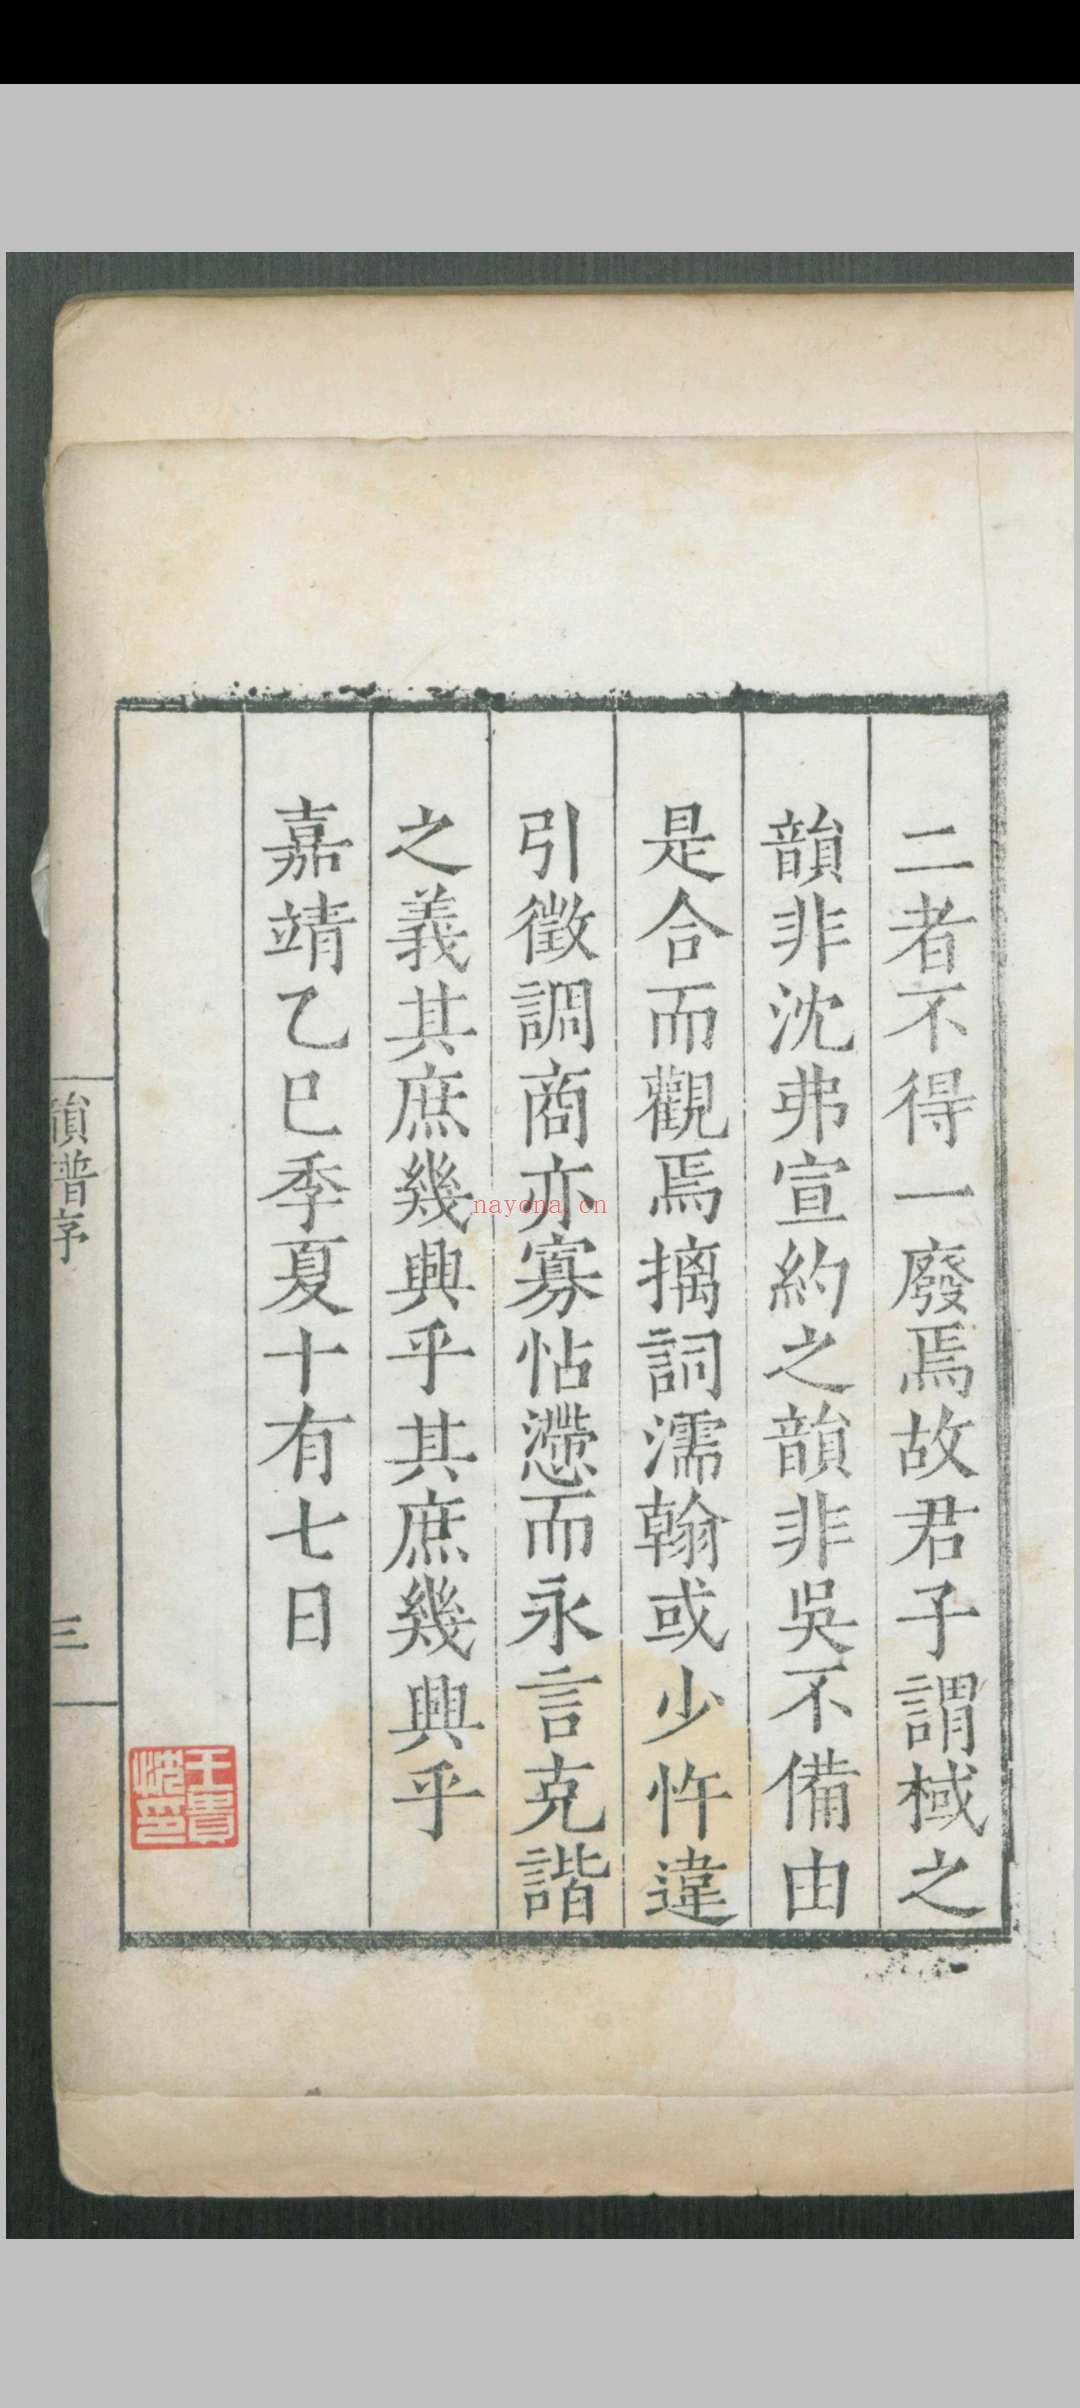 二者不得一廢焉故君子謂棫之
韻非沈弗宣約之韻非吳不備由
是合而觀焉摛詞濡翰或少忤違
引徵調商亦寡怗懘而永言克諧
之義其庶幾興乎其庶幾興乎
嘉靖乙巳季夏十有七日
韻譜序
三
nayona.cn